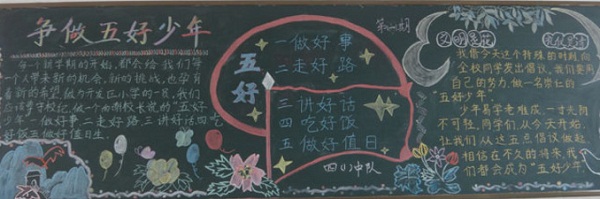 争做五好少年
每一新学期的开始,都会给我们每
个人带来新的机会,新的挑战,也孕育
着新的希望.做为开发区小学的一员,我们
应该遵守校纪,做一个西湖校最爱的"五好
少年"一做好事二走好路三讲好话四吃
好饭五做好值日生.
五好
第 期
一做好事
二走好路
三讲好话
四吃好饭
五做好值日
四(1)中队
文明礼仪
我借今天这个特殊的时刻向
全校同学发出倡议,我们要用
自己的努力,做一名常仁的
五好少年.
少年易学老难成,一寸光阴
不可轻.同学们,从今天开始,
让我们从这五点倡议做起.
相信在不久的将来,我
们都会成为"五好少年".